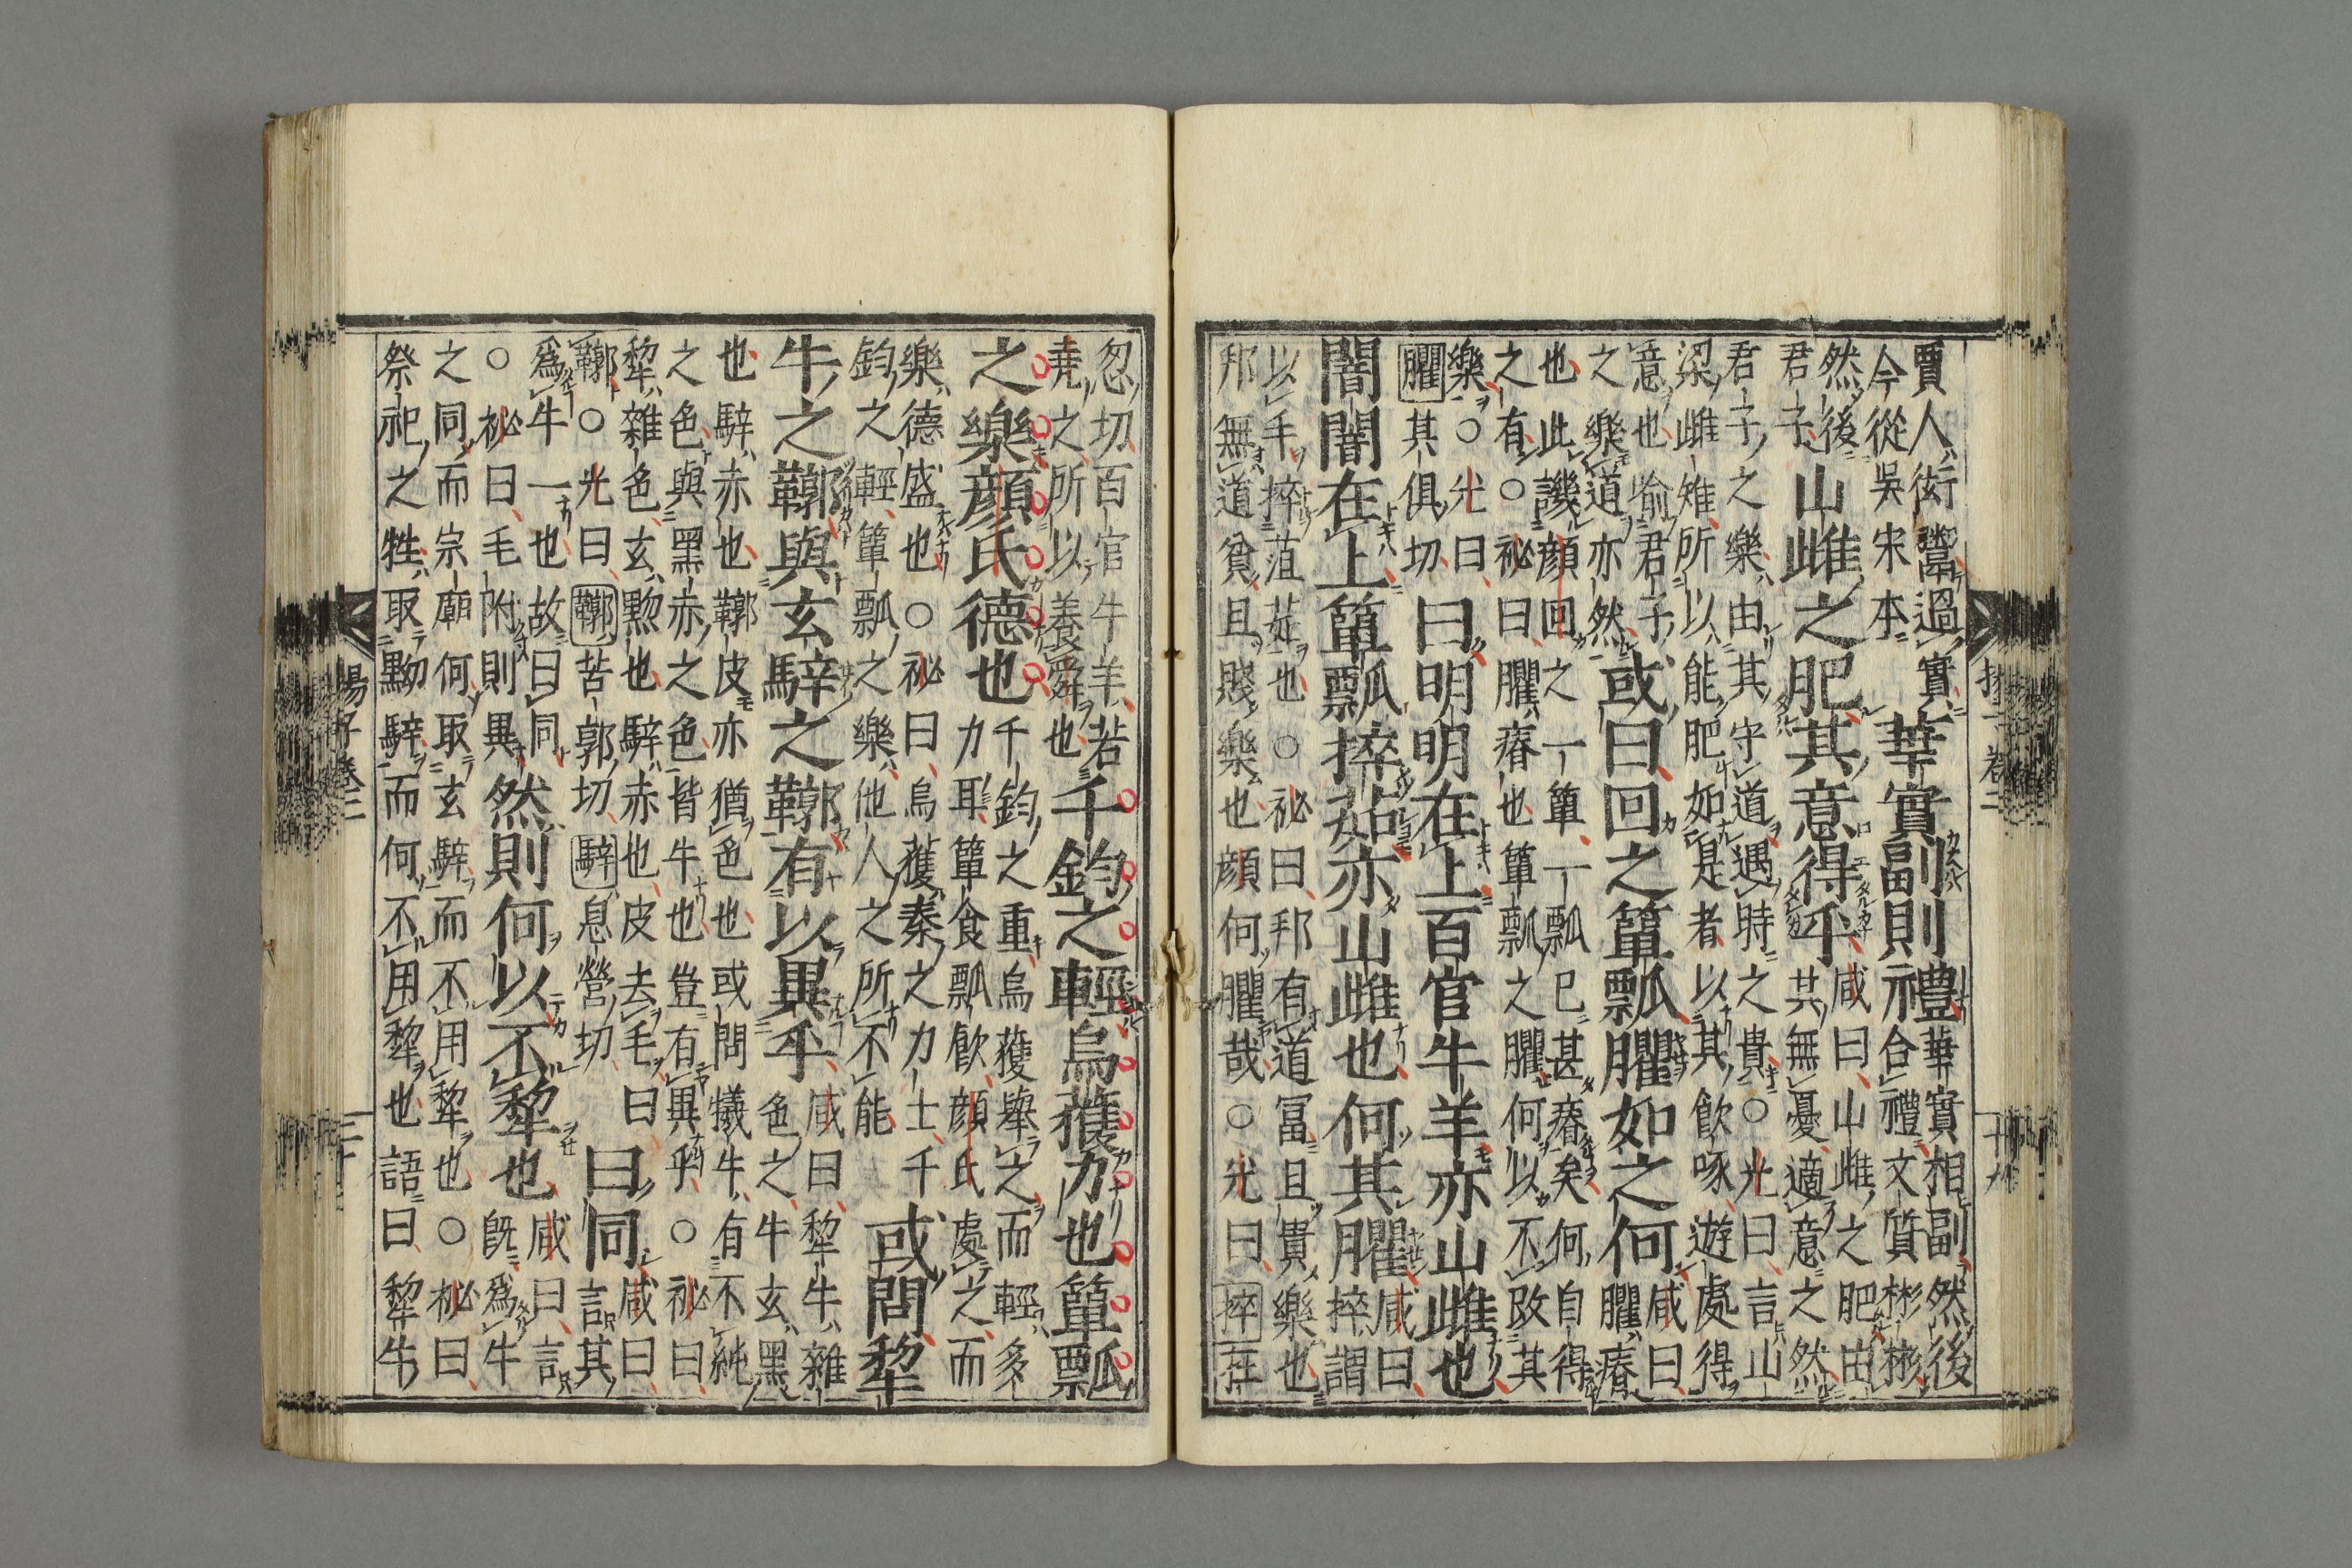 賈人衒鬻過實
今從吳宋本
華實副則禮
華實相副然後
合禮文質彬彬
然後
君子
山雌之肥其意得乎
咸曰山雌之肥由
其無憂適意之然
君子之樂由其守道遇時之貴○光曰言山
梁雌雉所以能肥如是者以其飲啄遊處得
意也喻君子
之樂道亦然
或曰回之簞瓢臞如之何
咸曰
臞瘠
也此譏顏回之一簞一瓢已甚瘠矣何自得
之有○祕曰臞瘠也簞瓢之臞何以不改其
樂○光曰
臞其俱切
曰明明在上百官牛羊亦山雌也
闇闇在上簞瓢捽茹亦山雌也何其臞
咸曰
捽謂
以手捽菹茹也○祕曰邦有道富且貴樂也
邦無道貧且賤樂也顏何臞哉○光曰捽在
忽切百官牛羊若
堯之所以養舜也
千鈞之輕烏獲力也簞瓢
之樂顏氏德也
千鈞之重烏獲舉之而輕多
力耳簞食瓢飮顏氏處之而
樂德盛也○祕曰烏獲秦之力士千
鈞之輕簞瓢之樂他人之所不能
或問犂
牛之鞹與玄騂之鞹有以異乎
咸曰犂牛雜
色之牛玄黑
也騂赤也鞹皮亦猶色也或問犧牛有不純
之色與黑赤之色皆牛也豈有異乎○祕曰
犂雜色玄黝也騂赤也皮去毛曰
鞹○光曰鞹苦郭切騂息營切
曰同
咸曰
言其
爲牛一也故曰同
○祕曰毛附則異
然則何以不犂也
咸曰言
旣爲牛
之同而宗廟何取玄騂而不用犂也○祕曰
祭祀之牲取黝騂而何不用犂也語曰犂牛
揚子卷二
十九
揚子卷三
二十